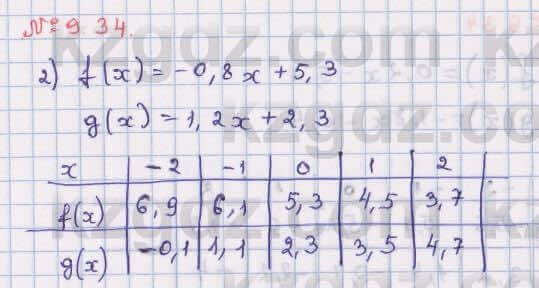 № 9 34.
2) f(x) = -0,8x + 5,3
g(x) = 1,2x + 2,3
x -2 -1 0 1 2
f(x) 6,9 6,1 5,3 4,5 3,7
g(x) -0,1 1,1 2,3 3,5 4,7